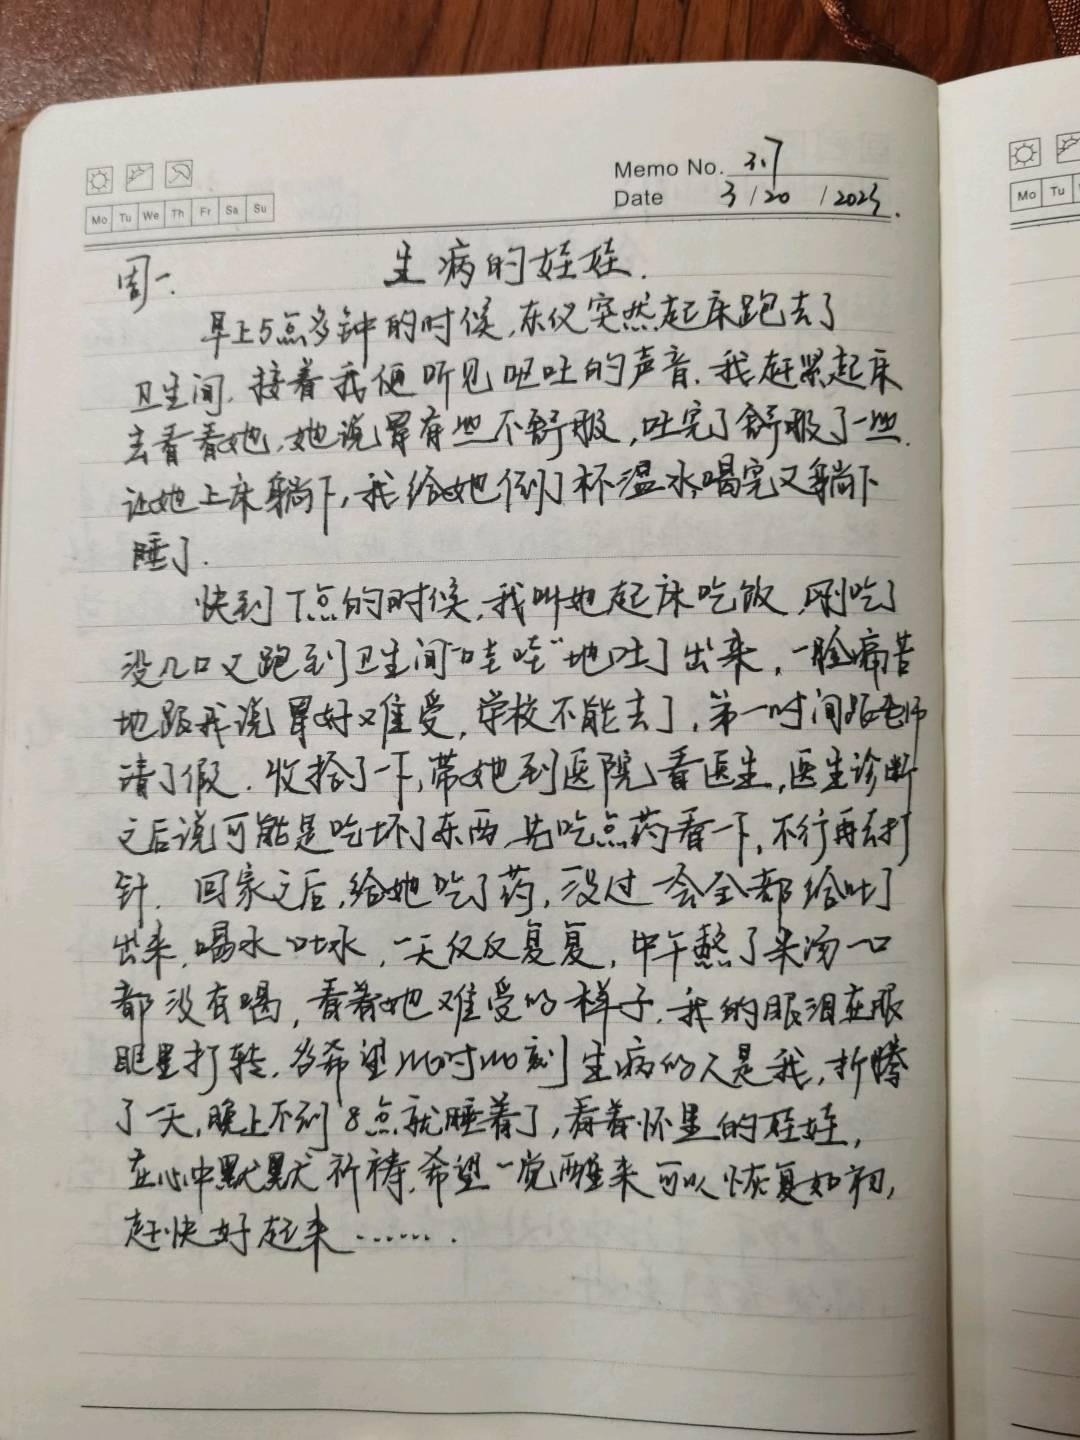 Memo No. 317
Date 3 / 20 / 2023.
Mo Tu We Th Fr Sa Su
Mo Tu
周一. 生病的娃娃.
早上5点多钟的时候,东仪突然起床跑去了
卫生间,接着我便听见呕吐的声音.我赶紧起床
去看看她,她说胃有些不舒服,吐完了舒服了一些.
让她上床躺下,我给她倒了杯温水,喝完又躺下
睡了.
快到7点的时候,我叫她起床吃饭,刚吃了
没几口又跑到卫生间"哇哇"地吐了出来,一脸痛苦
地跟我说胃好难受,学校不能去了,第一时间跟老师
请了假.收拾了一下,带她到医院看医生,医生诊断
之后说可能是吃坏了东西,先吃点药看一下,不行再去打
针.回家之后,给她吃了药,没过一会全部给吐了
出来,喝水吐水,一天反反复复,中午熬了米汤一口
都没有喝,看着她难受的样子.我的眼泪在眼
眶里打转,多希望此时此刻生病的人是我,折腾
了一天,晚上不到8点就睡着了,看着怀里的娃娃,
在心中默默祈祷,希望一觉醒来可以恢复如初,
赶快好起来…….